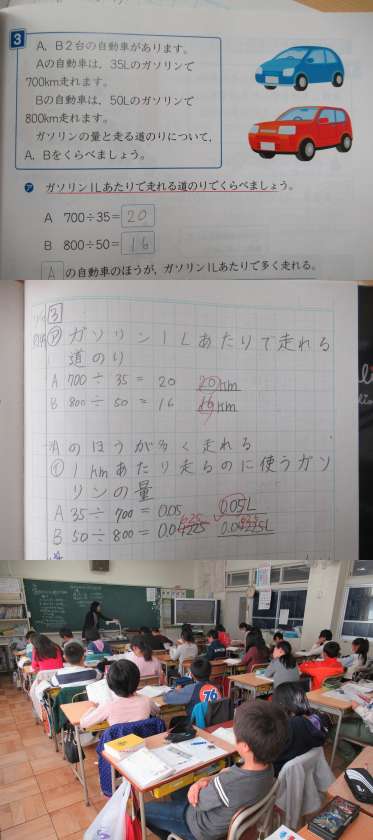 3
A，B2台の自動車があります。
Aの自動車は，35Lのガソリンで
700km走れます。
Bの自動車は，50Lのガソリンで
800km走れます。
ガソリンの量と走る道のりについて，
A，Bをくらべましょう。
㋐ ガソリン1Lあたりで走れる道のりでくらべましょう。
A 700÷35＝ 20
B 800÷50＝ 16
A の自動車のほうが，ガソリン1Lあたりで多く走れる。
3
㋐ ガソリン1Lあたりで走れる
道のり
A 700÷35=20 20km
B 800÷50=16 16km
Aのほうが多く走れる
㋑ 1kmあたり走るのに使うガソ
リンの量
A 35÷700=0.05 0.05L
B 50÷800=
76